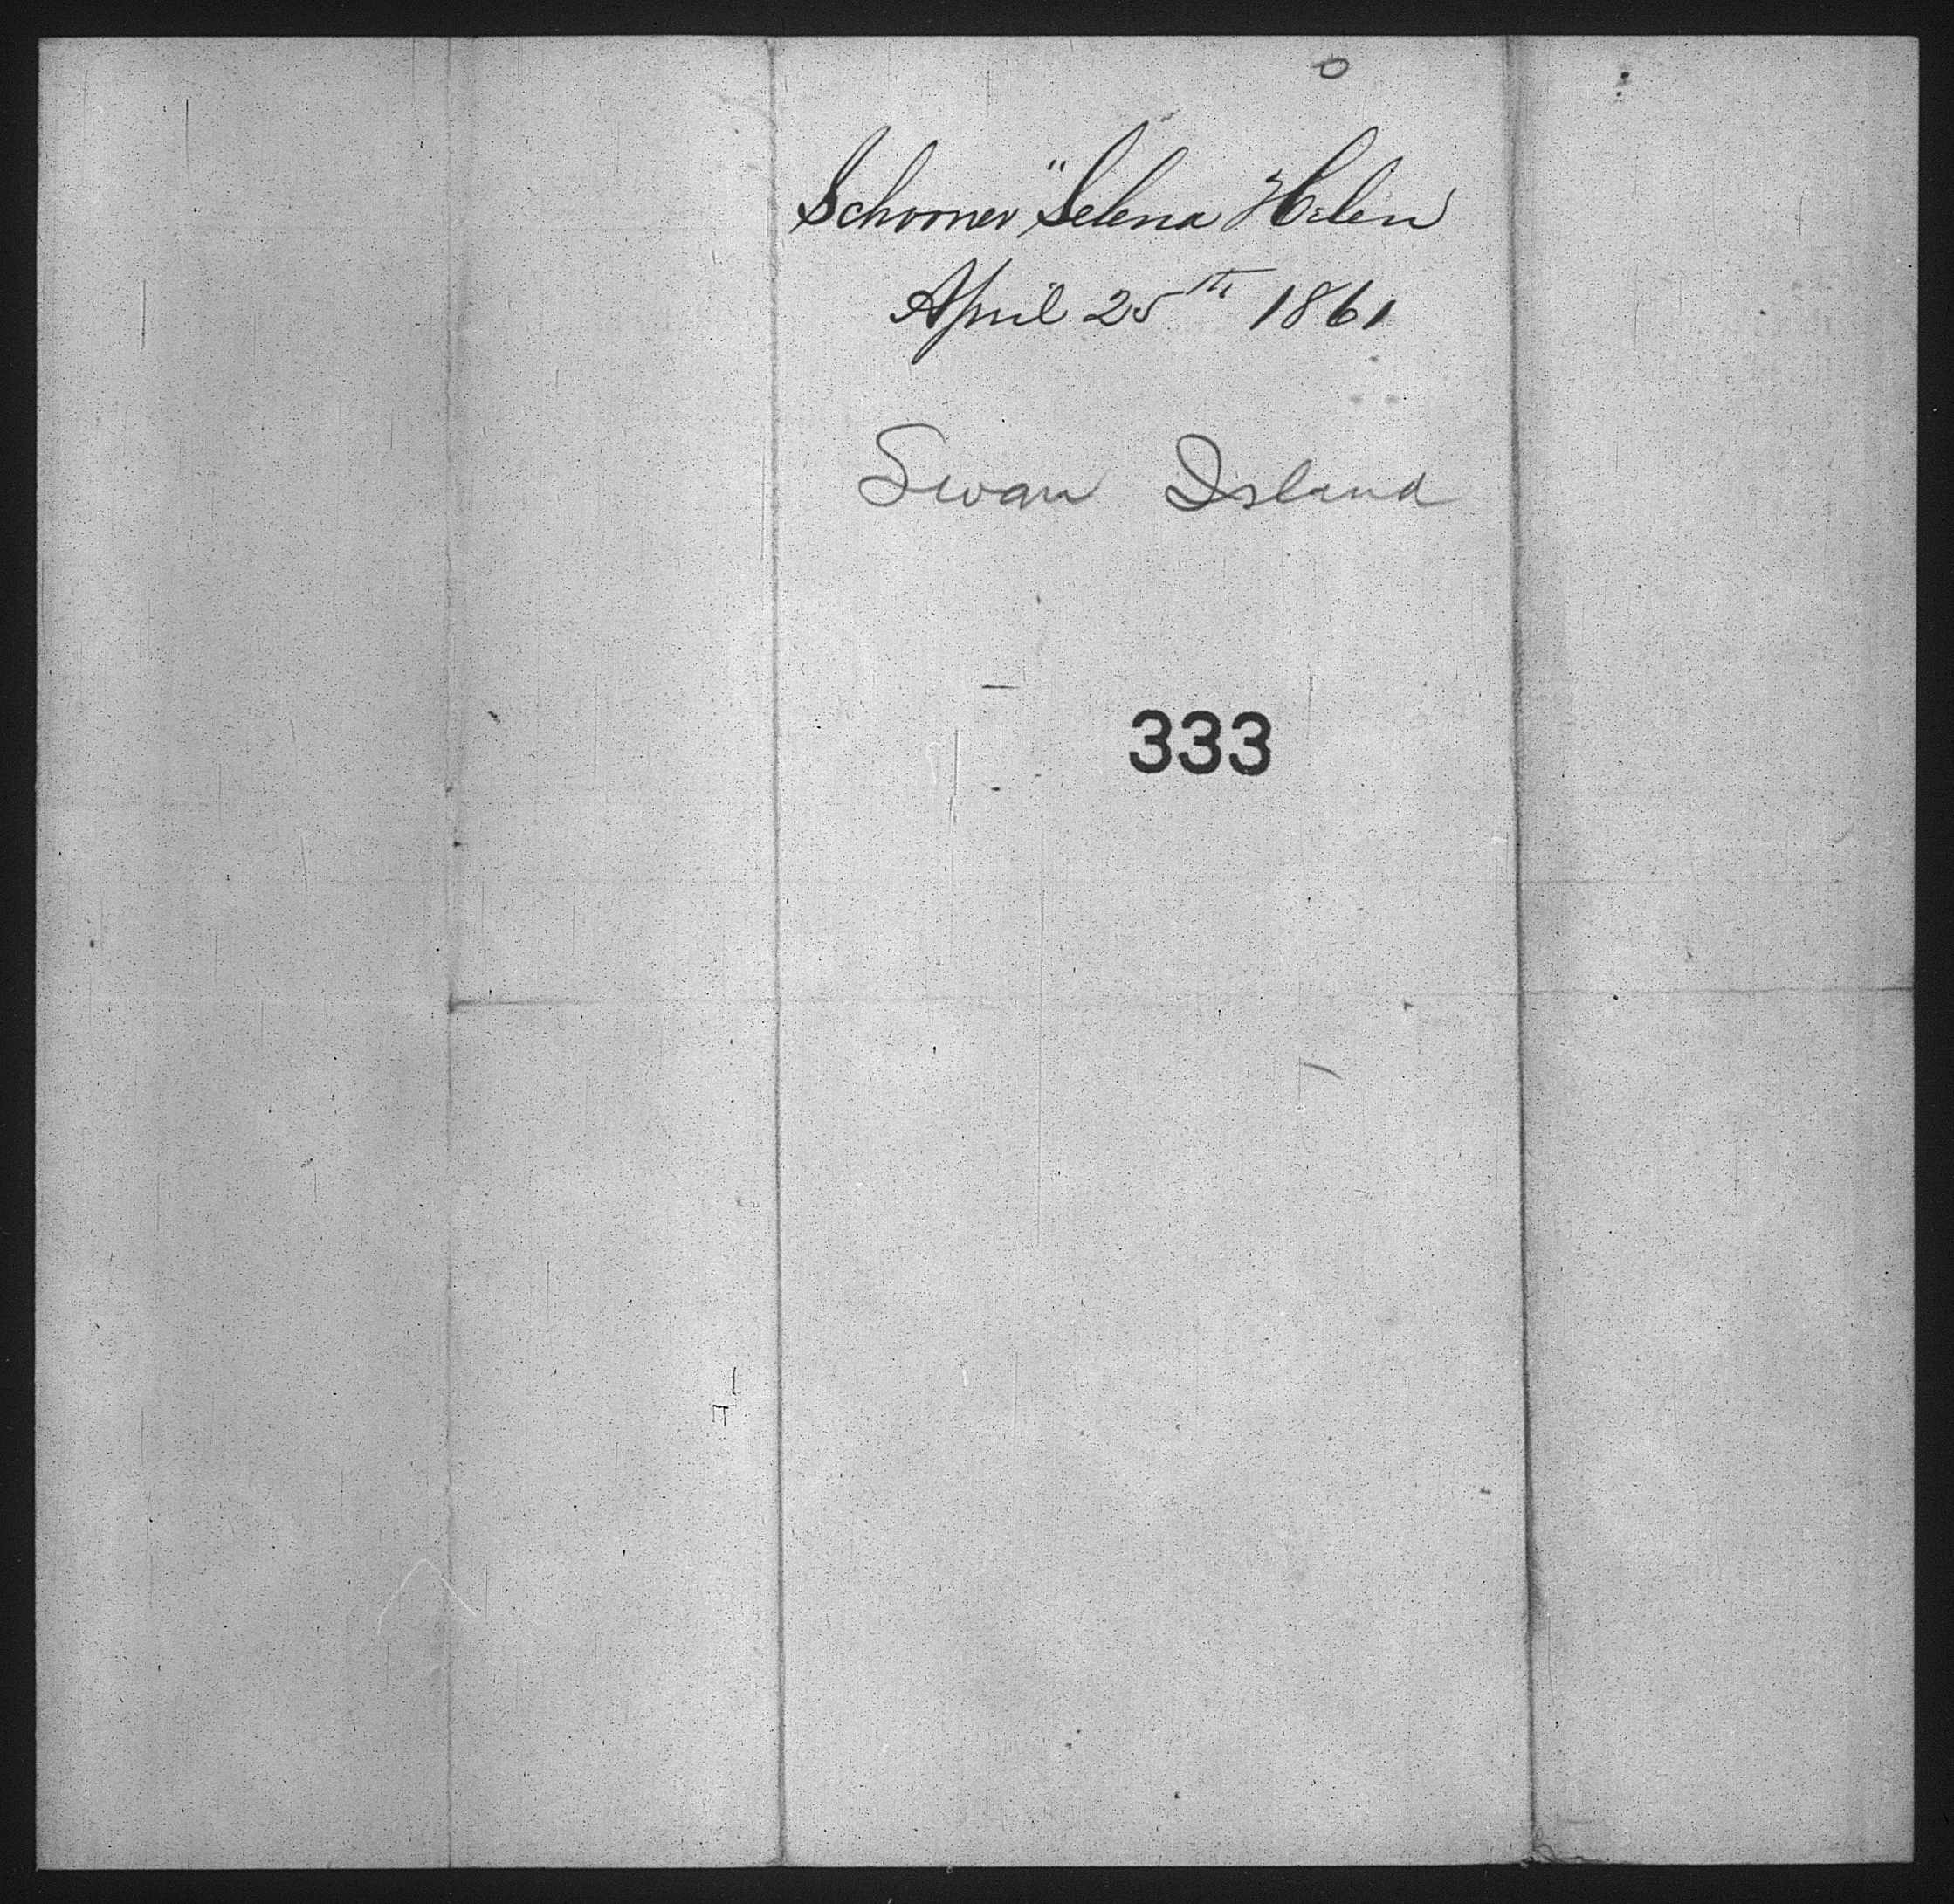 Schooner "Selena Helen
April 25th 1861
Swan Island
333